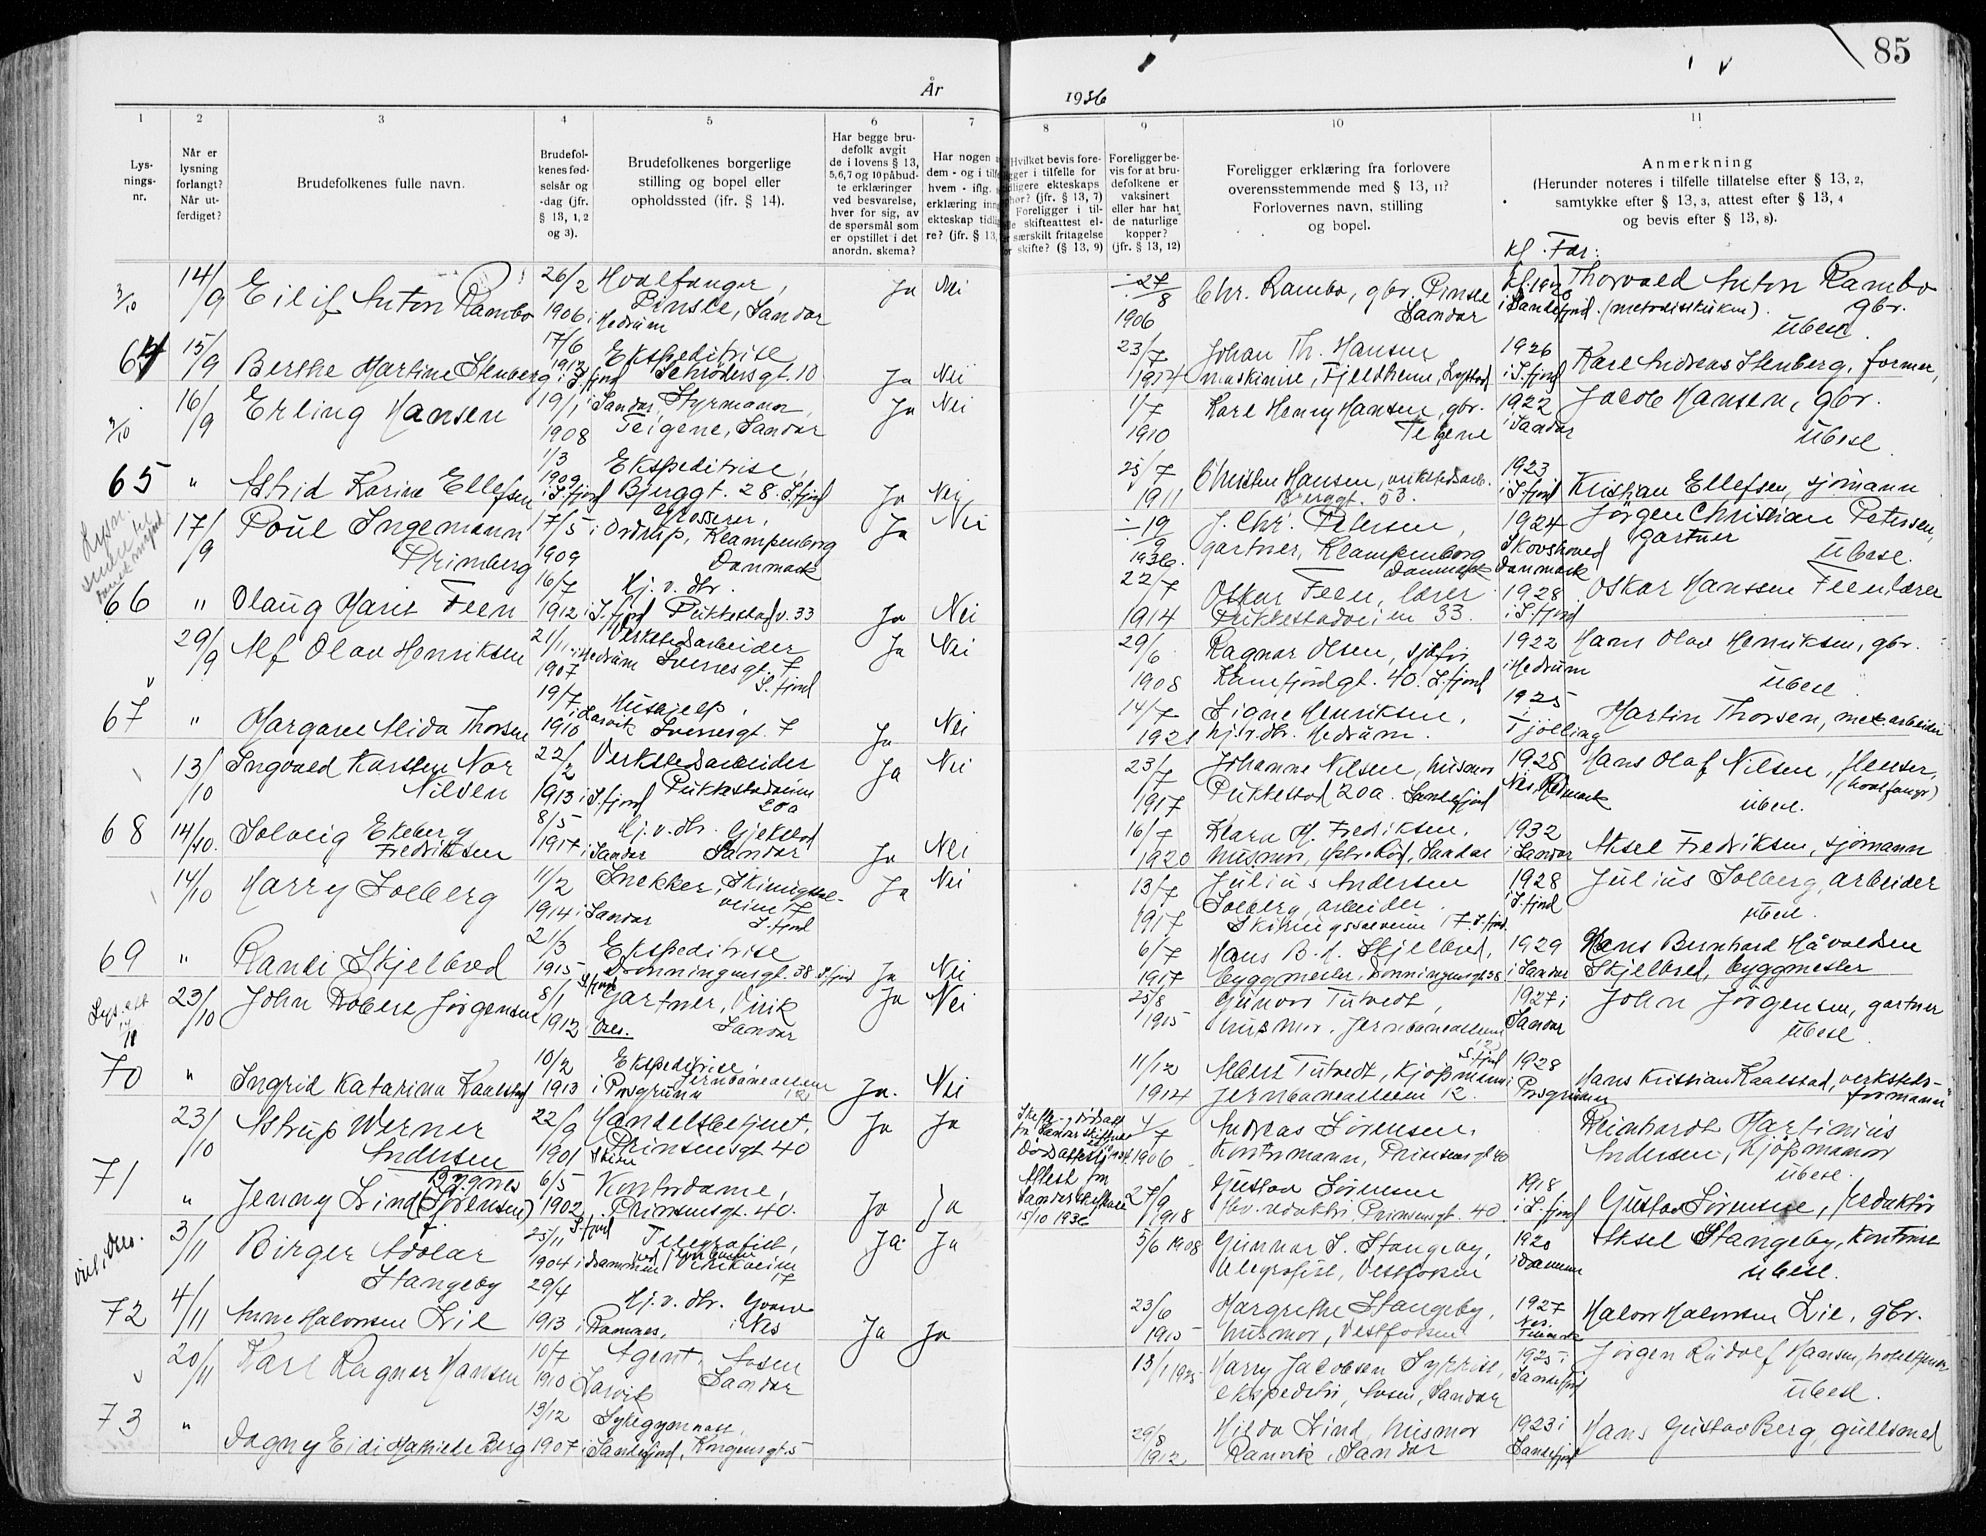 85
År 1936
1 2 3 4 5 6 7 8 9 10 11
Lys-
nings-
nr.
Når er
lysning
forlangt?
Når ut-
ferdiget?
Brudefolkenes fulle navn.
Brudefol-
kenes fød-
selsår og
-dag (jfr.
§ 13, 1, 2
og 3).
Brudefolkenes borgerlige
stilling og bopel eller
opholdssted (ifr. § 14).
Har begge bru-
defolk avgit
de i lovens § 13,
5,6,7 og 10 påbud-
te erklæringer
ved besvarelse,
hver for sig, av
de spørsmål som
er opstillet i det
anordn. skema?
Har nogen a
dem - og i tilfe
hvem - iflg.
erklæring inn
ekteskap tidlig
re? (jfr. § 13,
Hvilket bevis fore-
ligger i tilfelle for
tidligere ekteskaps
ophør? (jfr. § 13, 7)
Foreligger i til-
skifteattest el-
særskilt fritagelse
for skifte? (§ 13, 9)
Foreligger be-
vis for at bru-
defolkene er
vaksinert
eller har hat
de naturlige
kopper?
(jfr. § 13, 12)
Foreligger erklæring fra forlovere
overensstemmende med § 13, 11?
Forlovernes navn, stilling
og bopel.
Anmerkning
(Herunder noteres i tilfelle tillatelse efter § 13, 2,
samtykke efter § 13, 3, attest efter § 13, 4
og bevis efter § 13, 8).
Kf. Far:
14/9 Eilif Anton Rambo 26/2 1906 i Hedrum Hvalfanger, Pinsle, Sandar Ja Nei 27/8 1906 Chr. Rambo, gbr. Pinsle Sandar Kf. 1920 i Sandefjord (metodistkirken). Thorvald Anton Rambo gbr. ubesl.
64 15/9 Berthe Martine Stenberg 17/6 1912 i S.fjord Ekspeditrise Schrødersgt. 10 Ja Nei 23/7 1914 Johan Th. Hansen maskinise, Fjeldheim, 1926 i S.fjord Karl Andreas Stenberg, former,
16/9 Erling Hansen 19/1 1908 i Sandar Styrmann, Teigene, Sandar Ja Nei 1/7 1910 Karl Henry Hansen, gbr. Teigene 1922 i Sandar Jacob Hansen, gbr. ubesl.
65 " Astrid Karine Ellefsen 1/3 1909 i S.fjord Ekspeditrise, Bjerggt. 28. S.fjord Ja Nei 23/7 1911 Christen Hansen, verkstedsarb. Bjerggt. 53. 1923 i S.fjord Kristian Ellefsen, sjømann
17/9 Poul Ingemann 17/5 1909 i Ordrup, Grosserer, Klampenborg Danmark Ja Nei 19/9 1936 J. Chr. Petersen, gartner, Klampenborg Danmark 1924 Skovshoved Danmark Jørgen Christian Petersen, gartner ubesl.
66 " Olaug Marie Feen 16/7 1912 i S.fjord Hj. v. dr. Pukkestadv. 33 Ja Nei 22/7 1914 Oskar Feen, lærer Pukkestadveien 33. 1928 i S.fjord Oskar Hanssen Feen, lærer
29/9 Alf Olav Henriksen 21/11 1907 i Hedrum Verkstedsarbeider Sverresgt. 7 S.fjord Ja Nei 29/6 1908 Ragnar Olsen, Kamfjordgt. 40. S.fjord 1922 i Hedrum Hans Olav Henriksen, gbr. ubesl.
67 " Margaret Alida Thorsen 19/7 1910 i Larvik Hushjelp, Sverresgt. 7 Ja Nei 14/7 1921 Signe Henriksen, hj.v.dr. Hedrum. 1925 Tjølling Martin Thorsen, mek. arbeider
13/10 Ingvald Karsten Nor Nilsen 22/2 1913 i S.fjord Verkstedsarbeider Pukkestadveien 20a Ja Nei 23/7 1917 Johanne Nilsen, husmor Pukkestad 20a. Sandefjord 1928 Nes, Hedmark Hans Olaf Nilsen, flenser, (hvalfanger) ubesl.
68 14/10. Solveig Ekeberg Fredriksen 8/5 1917 i Sandar Hj. v. dr. Gjekstad Sandar Ja Nei 16/7 1920 Klara M. Fredriksen, husmor, Sandar 1932 i Sandar Aksel Fredriksen, sjømann
14/10 Harry Solberg 11/2 1914 i Sandar Snekker, Skiringssalveien 17 S.fjord Ja Nei 13/7 1917 Julius Andersen Solberg, arbeider. Skiringssalveien 17. S.fjord. 1928 S.fjord Julius Solberg, arbeider ubesl.
69 " Randi Skjelbred 21/3 1915 S.fjord Ekspeditrise Dronningensgt. 38 S.fjord Ja Nei 6/7 1917 Hans B. H. Skjelbred, byggmester, Dronningensgt 38 1929 i Sandar Hans Bernhard Håvaldsen Skjelbred, byggmester
23/10 John Robert Jørgensen 8/1 1912 Gartner, Virik Sandar Ja Nei 25/8 1915 Gunvor Tutvedt, husmor. Jernbanealleen 12 S.fjord 1927 i Sandar John Jørgensen, gartner ubesl.
70 " Ingrid Katarina Kaalstad 10/2 1913 i Porsgrunn Ekspeditrise, Jernbanealleen 12 Ja. Nei 11/12 1914 Albert Tutvedt, kjøpmann Jernbanealleen 12. 1928 i Porsgrunn Hans Kristian Kaalstad, verksteds-formann
23/10 Astrup Werner Andersen 22/9 1901 Skien Handelsbetjent. Prinsensgt 40 Ja Ja 4/7 1906 Andreas Sørensen, Kontormann, Prinsensgt 40 Reinhardt Martinius Andersen, kjøpmann ubesl.
71 " Jenny Lind Bygnes (f. Sørensen) 6/5 1902 S.fjord Kontordame, Prinsensgt. 40. Ja Ja Attest fra Sandar 15/10 1936 27/9 1918 Gustav Sørensen fhv. redaktør Prinsensgt. 40 1918 i S.fjord Gustav Sørensen, redaktør
3/11 Birger Adolar Stangeby 25/11 1904 i Drammen Telegrafist, Virikveien 17 Ja. Ja 5/6 1908 Gunnar S. Stangeby, telegrafist, Vestfossen 1920 i Drammen Aksel Stangeby, kontorist ubesl.
72 4/11 Anne Halvorsen Lie 29/4 1913 i Ramnes, Hj. v. dr. Gvarv i Nes Ja Ja 23/6 1915 Margrethe Stangeby, husmor, Vestfossen 1927 Nes. Telemark Halvor Halvorsen Lie, gbr.
20/11 Karl Ragnar Hansen 10/7 1910 Larvik Agent, Aasen Sandar 13/1 1925 Harry Jacobsen ekspeditør, Aasen, Sandar 1925 i Sandefjord Jørgen Rudolf Hansen, ubesl.
73 " Dagny Eidi Mathilde Berg 13/12 1907 i Sandefjord, Sykegymnast, Kongensgt. 5 29/8 1912 Hilda Lind, husmor Ranvik, Sandar 1923 i Sandefjord Hans Gustav Berg, gullsmed